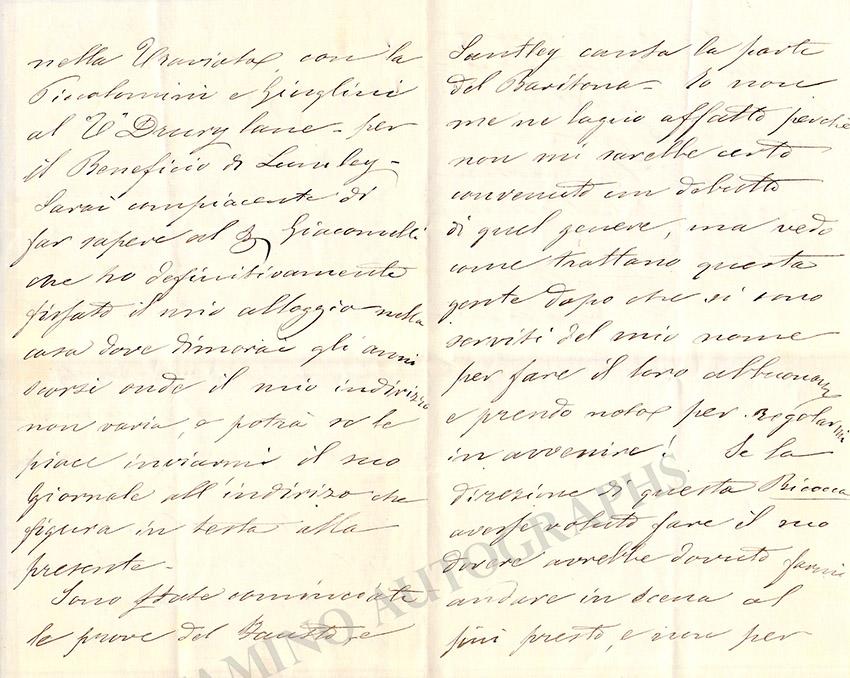 nella Traviata con la
Piccolomini e Giuglini
al T° Drury lane - per
il Beneficio di Lumley -
Sarai compiacente di
far sapere al Giacomelli
che ho definitivamente
fissato il mio alloggio nella
casa dove dimorai gli anni
scorsi onde il mio indirizzo
non varia, e potrà se le
piace inviarmi il suo
Giornale all'indirizo che
figura in testa alla
presente -
Sono state cominciate
le prove del Fausto - e
Santley canta la parte
del Baritono - Io non
me ne lagno affatto perchè
non mi sarebbe certo
convenuto un debutto
di quel genere, ma vedo
come trattano questa
gente dopo che si sono
serviti del mio nome
per fare il loro abbuonam
e prendo nota per regolarmi
in avvenire! Se la
direzione di questa Bicocca
avesse voluto fare il suo
dovere avrebbe dovuto farmi
andare in scena al
più presto, e non per
TAMINO AUTOGRAPHS